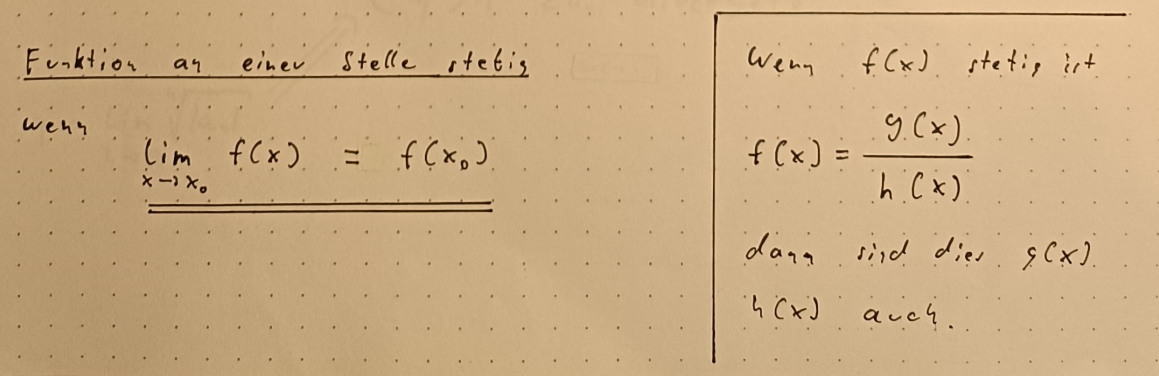 Funktion an einer Stelle stetig
wenn
lim f(x) = f(x₀)
x→x₀
Wenn f(x) stetig ist
f(x) = g(x) / h(x)
dann sind dies g(x)
h(x) auch.